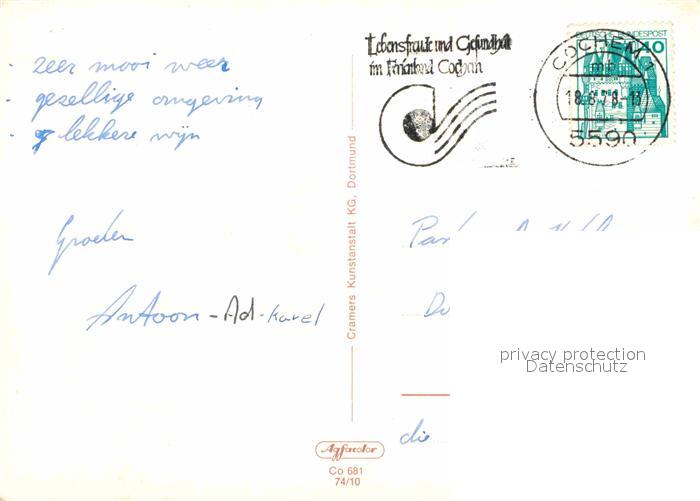 - zeer mooi weer
- gezellige omgeving
- lekkere wijn
Groeten
Antoon - Ad - Karel
Cramers Kunstanstalt KG, Dortmund
Lebensfreude und Gesundheit
im Ferienland Cochem
COCHEM 1
mb
18.8.78-13
5590
DEUTSCHE BUNDESPOST
40
privacy protection
Datenschutz
Agfacolor
Co 681
74/10